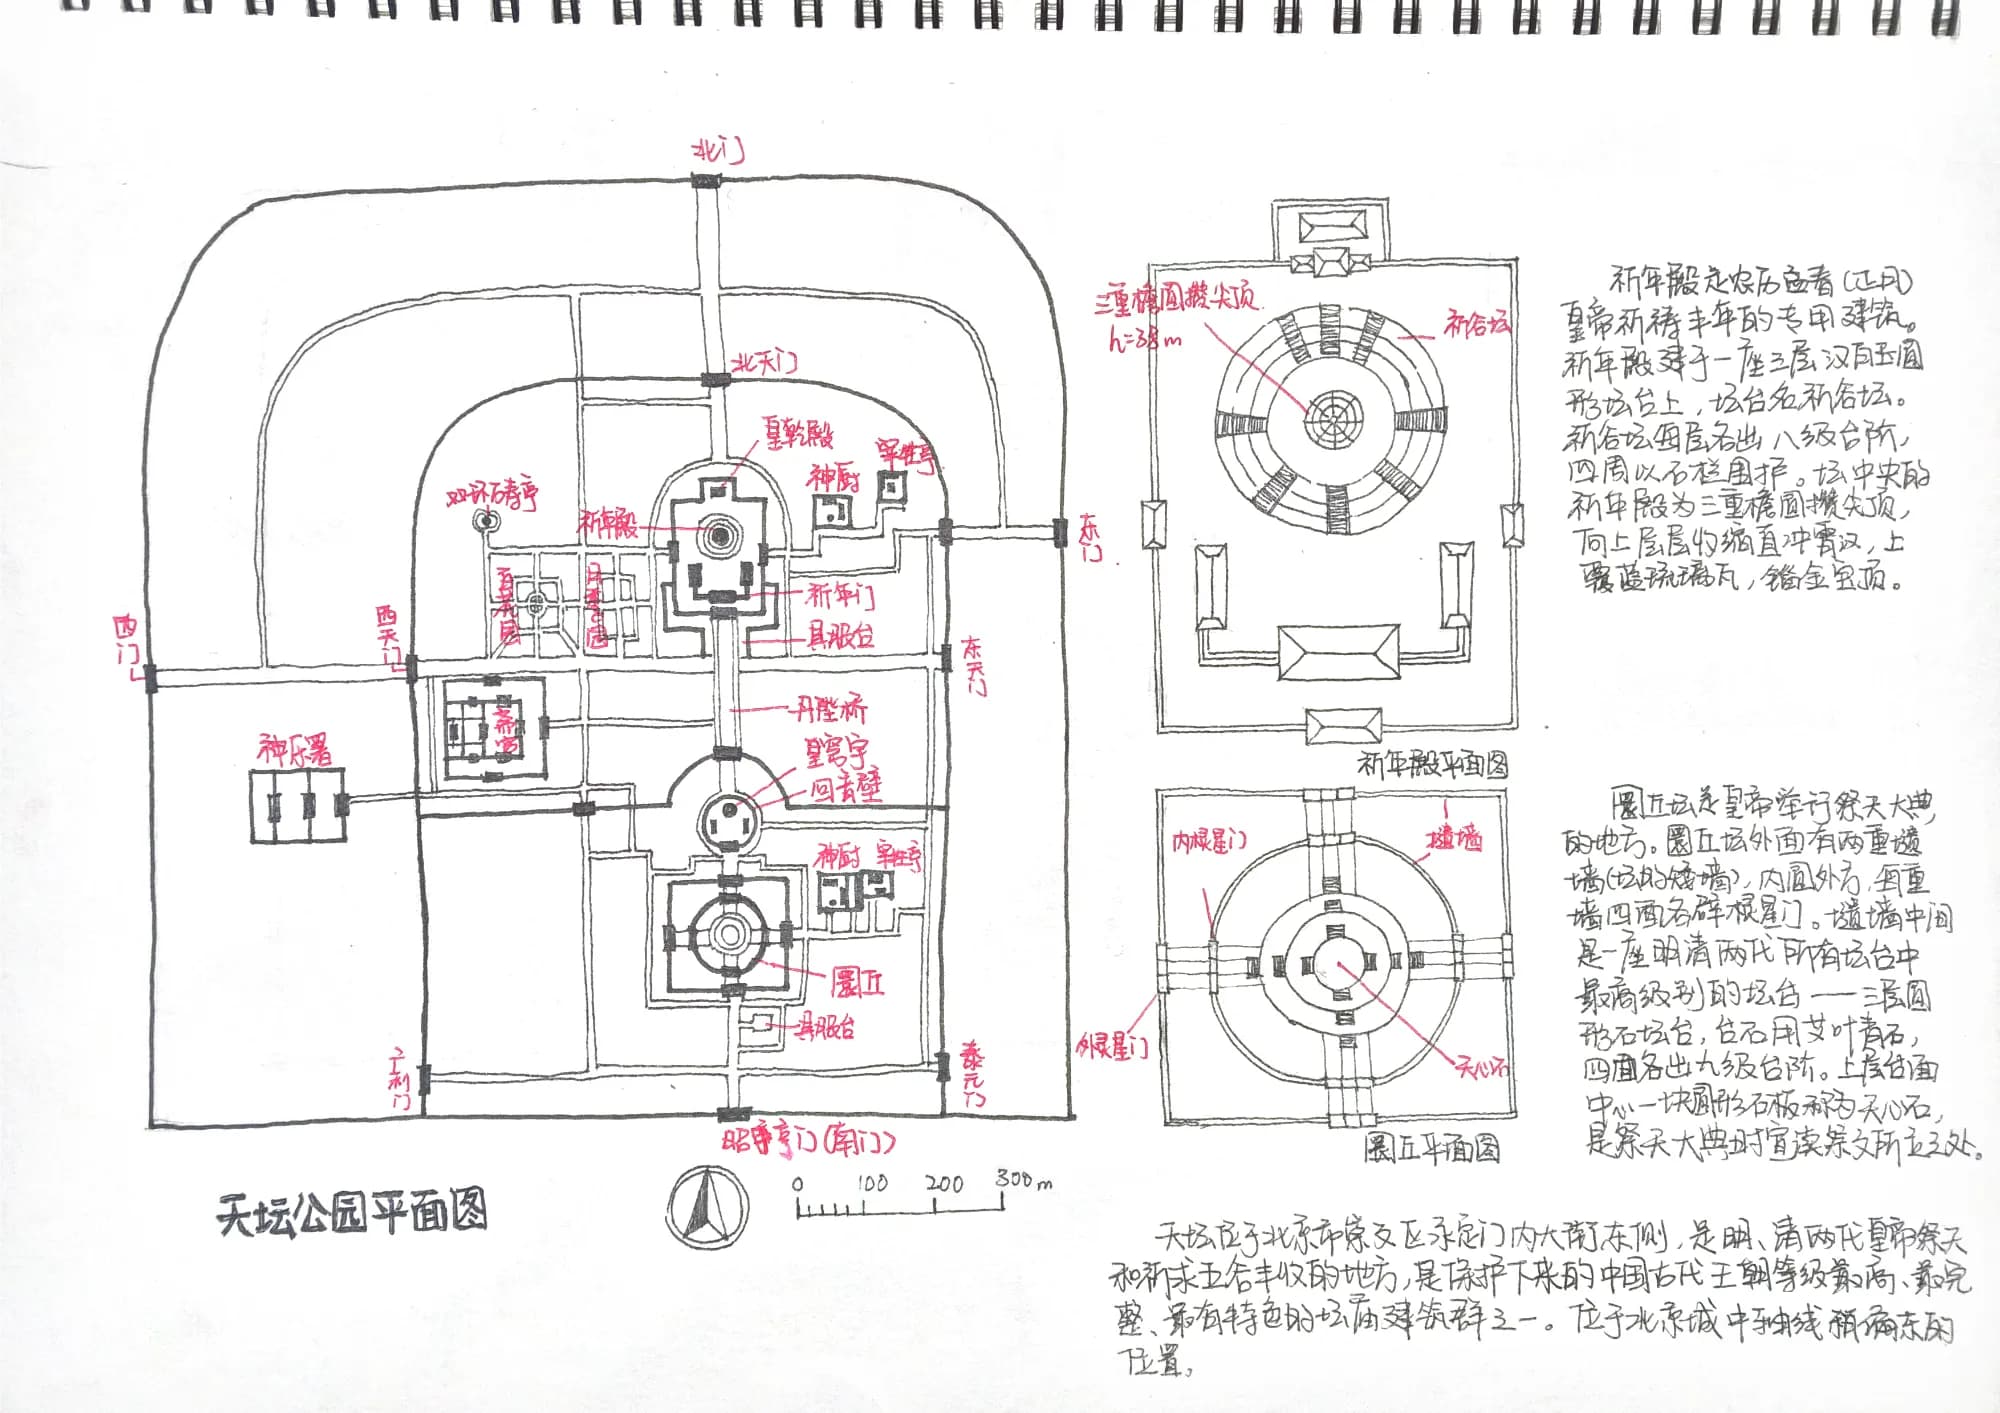 北门
北天门
皇乾殿
神厨
宰牲亭
双环万寿亭
祈年殿
东门
百花园
月季园
祈年门
具服台
西门
西天门
东天门
丹陛桥
斋宫
神乐署
皇穹宇
回音壁
神厨 宰牲亭
圜丘
具服台
广利门
泰元门
昭亨门(南门)
天坛公园平面图
0 100 200 300m
三重檐圆攒尖顶
h=38m
祈谷坛
祈年殿平面图
内棂星门
壝墙
外棂星门
天心石
圜丘平面图
祈年殿是农历孟春(正月)
皇帝祈祷丰年的专用建筑。
祈年殿建于一座三层汉白玉圆
形坛台上，坛台名祈谷坛。
祈谷坛每层各出八级台阶，
四周以石栏围护。坛中央的
祈年殿为三重檐圆攒尖顶，
向上层层收缩直冲霄汉，上
覆蓝琉璃瓦，镏金宝顶。
圜丘坛是皇帝举行祭天大典
的地方。圜丘坛外面有两重壝
墙(坛的矮墙)，内圆外方，每重
墙四面各辟棂星门。壝墙中间
是一座明清两代所有坛台中
最高级别的坛台——三层圆
形石坛台，台石用艾叶青石，
四面各出九级台阶。上层台面
中心一块圆形石板称为天心石，
是祭天大典时宣读祭文所立之处。
天坛位于北京市崇文区永定门内大街东侧，是明、清两代皇帝祭天
和祈求五谷丰收的地方，是保护下来的中国古代王朝等级最高、最完
整、最有特色的坛庙建筑群之一。位于北京城中轴线稍偏东的
位置。